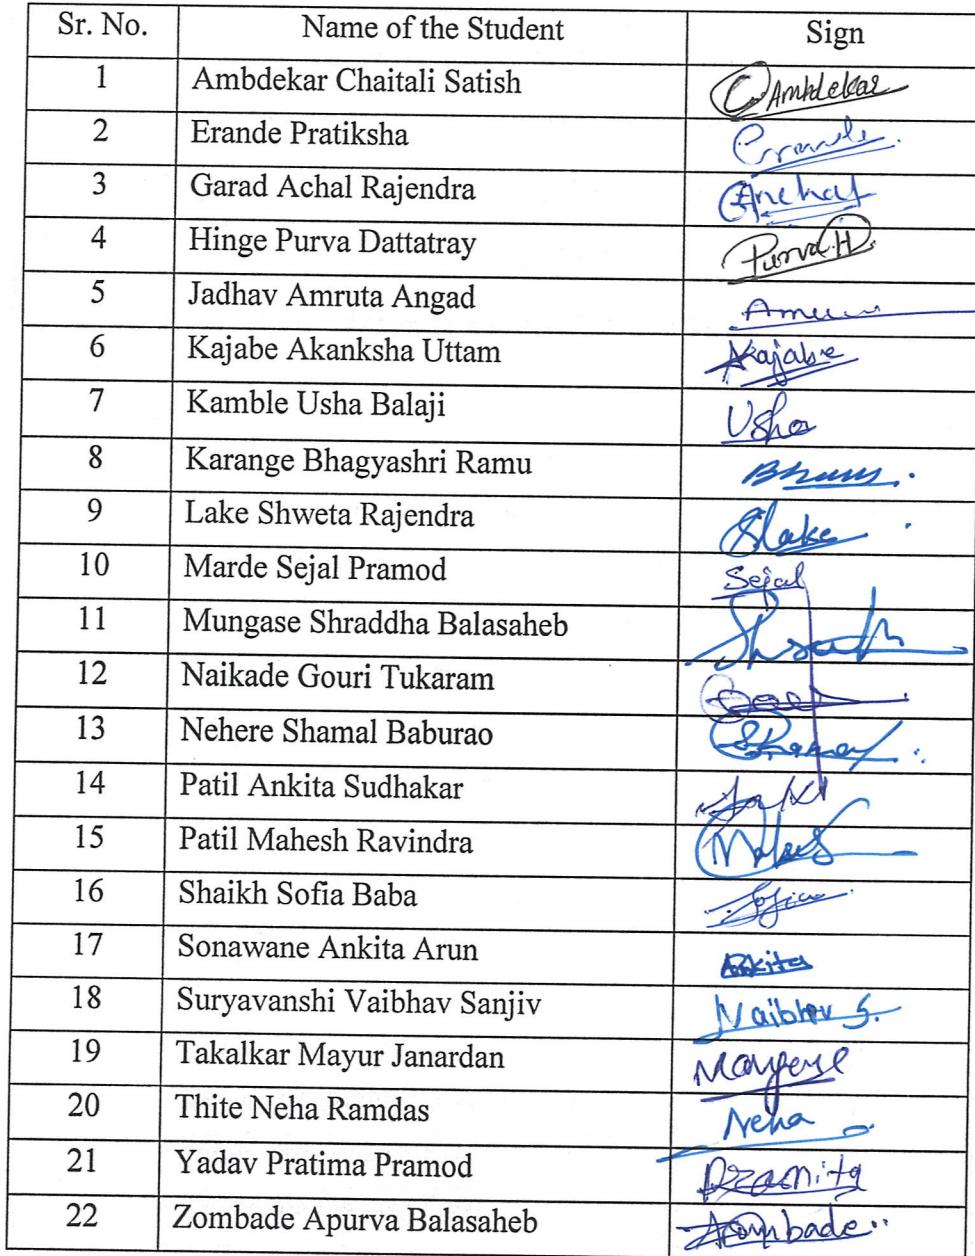 Sr. No. Name of the Student Sign
1 Ambdekar Chaitali Satish Ambdekar
2 Erande Pratiksha
3 Garad Achal Rajendra
4 Hinge Purva Dattatray Purva H
5 Jadhav Amruta Angad
6 Kajabe Akanksha Uttam Kajabe
7 Kamble Usha Balaji Usha
8 Karange Bhagyashri Ramu
9 Lake Shweta Rajendra Slake
10 Marde Sejal Pramod Sejal
11 Mungase Shraddha Balasaheb
12 Naikade Gouri Tukaram
13 Nehere Shamal Baburao
14 Patil Ankita Sudhakar
15 Patil Mahesh Ravindra
16 Shaikh Sofia Baba Sofia
17 Sonawane Ankita Arun Ankita
18 Suryavanshi Vaibhav Sanjiv Vaibhav S.
19 Takalkar Mayur Janardan
20 Thite Neha Ramdas Neha
21 Yadav Pratima Pramod
22 Zombade Apurva Balasaheb